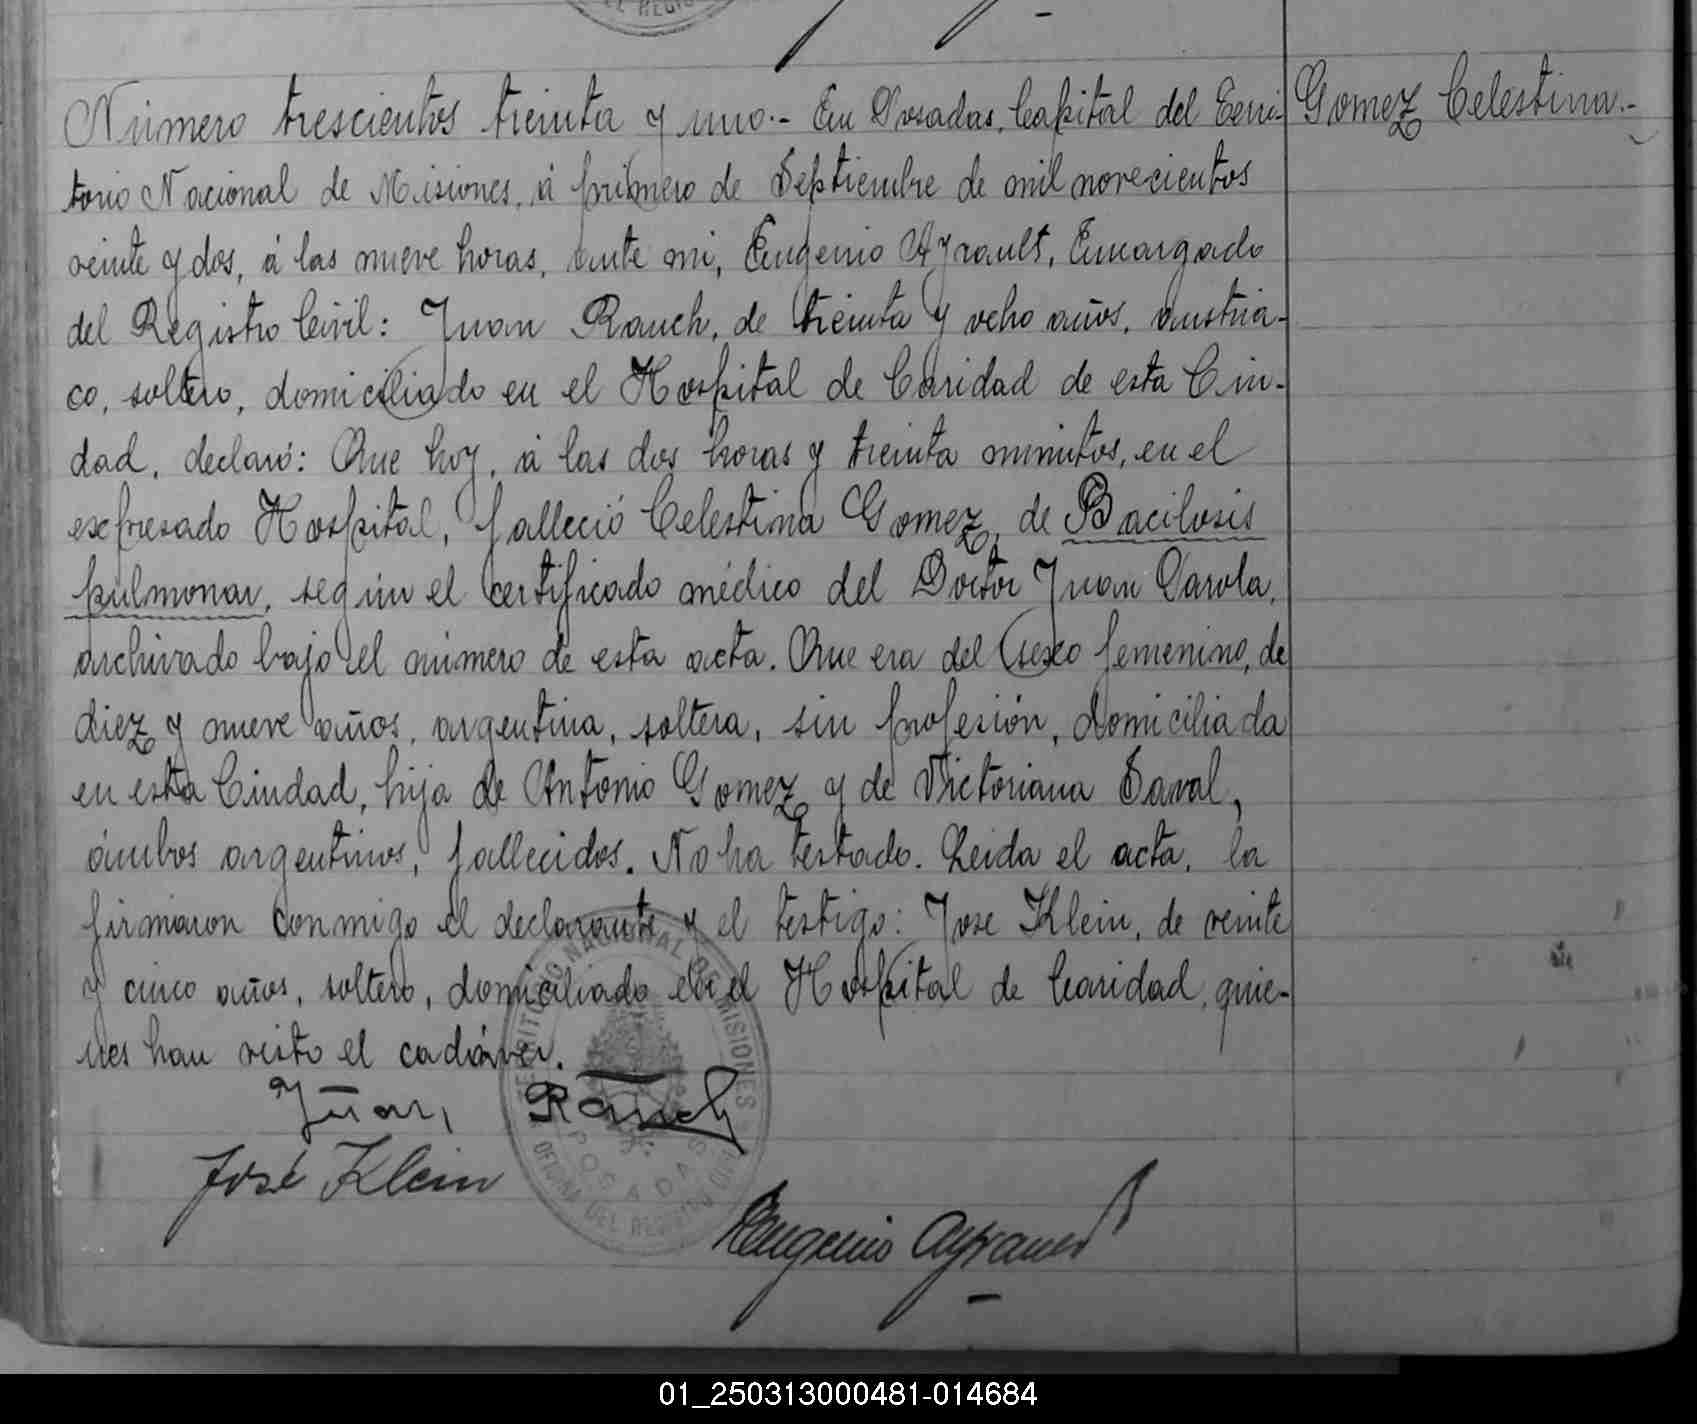 Número trescientos treinta y uno.- En Posadas, Capital del Terri-
Gomez Celestina.-
torio Nacional de Misiones, á primero de Septiembre de mil novecientos
veinte y dos, á las nueve horas, ante mi, Eugenio Ayrault, Encargado
del Registro Civil: Juan Rauch, de treinta y ocho años, austria-
co, soltero, domiciliado en el Hospital de Caridad de esta Ciu-
dad, declaró: Que hoy, á las dos horas y treinta minutos, en el
expresado Hospital, falleció Celestina Gomez, de Bacilosis
pulmonar, según el certificado médico del Doctor Juan Parola,
archivado bajo el número de esta acta. Que era del sexo femenino, de
diez y nueve años, argentina, soltera, sin profesión, domiciliada
en esta Ciudad, hija de Antonio Gomez y de Victoriana Saval,
ámbos argentinos, fallecidos. No ha testado. Leida el acta, la
firmaron conmigo el declarante y el testigo: Jose Klein, de veinte
y cinco años, soltero, domiciliado en el Hospital de Caridad, quie-
nes han visto el cadáver.
Juan Rauch
José Klein
Eugenio Ayrault
TERRITORIO NACIONAL DE MISIONES
POSADAS
OFICINA DEL REGISTRO CIVIL
01_250313000481-014684